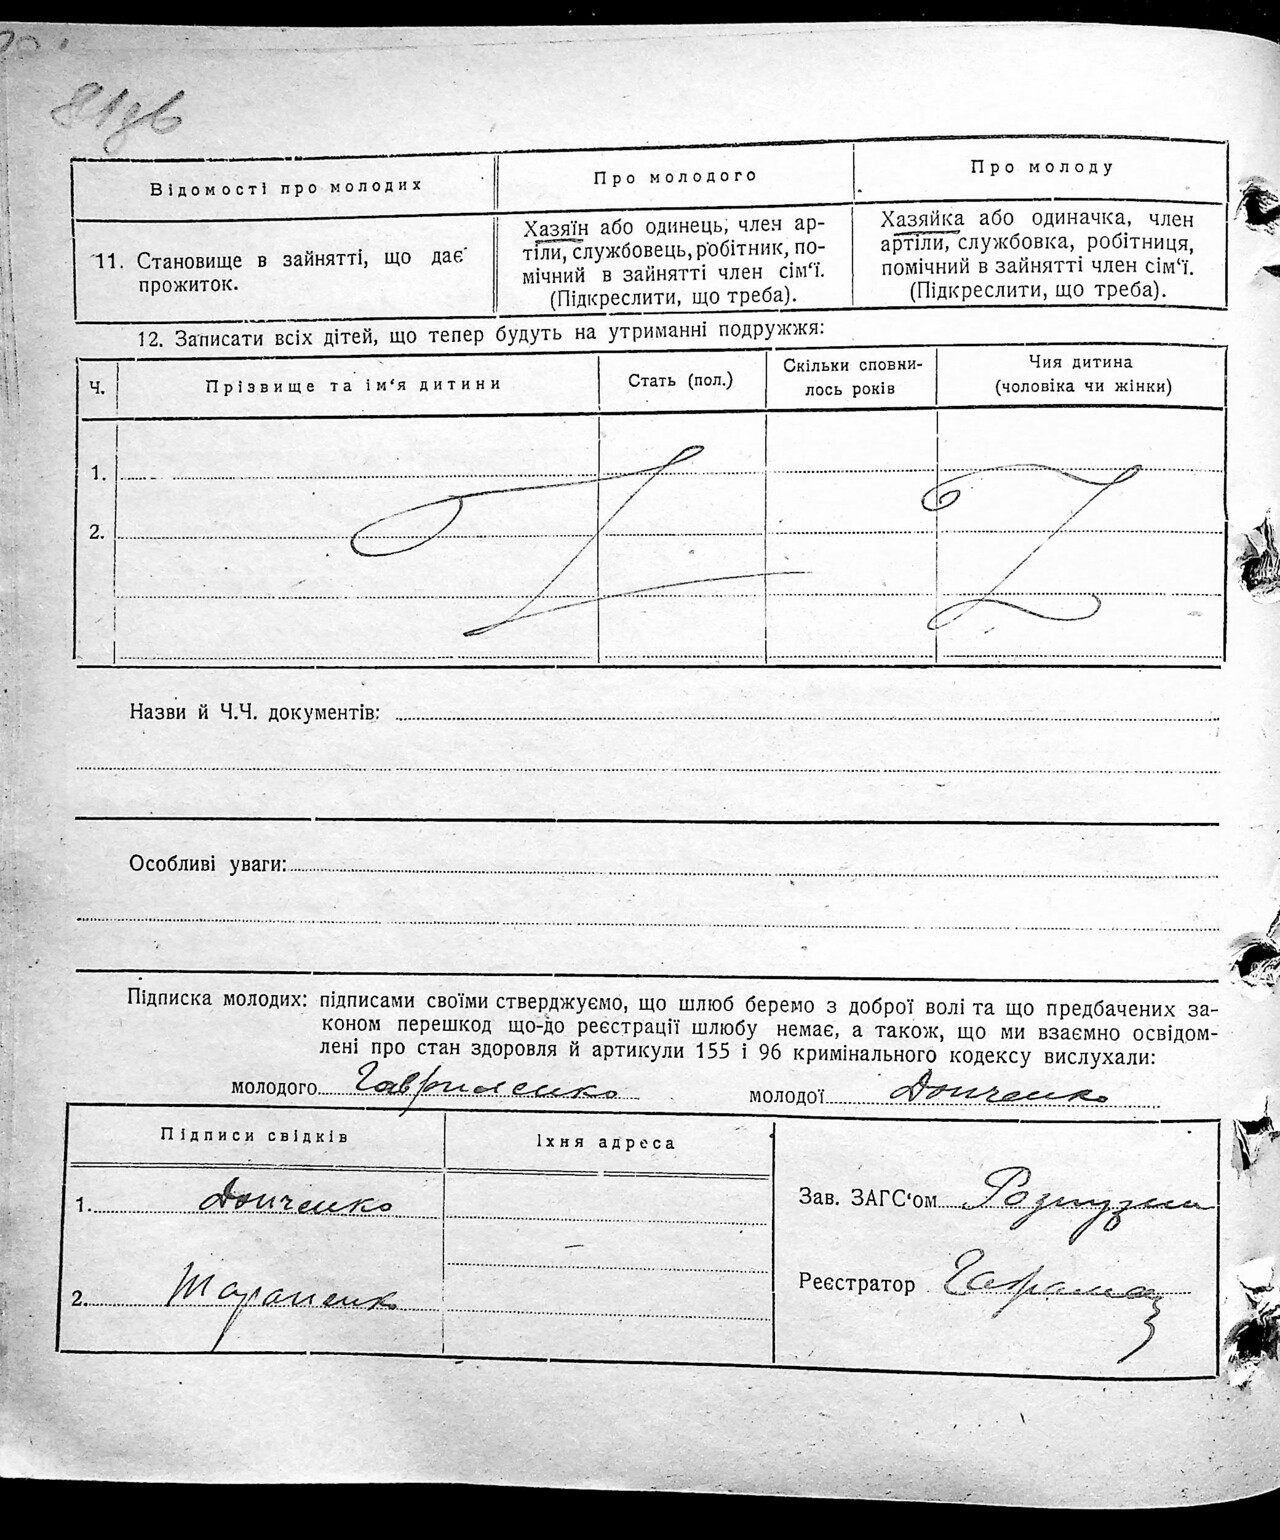 81зв
Відомості про молодих
Про молодого
Про молоду
11. Становище в зайнятті, що дає
прожиток.
Хазяїн або одинець, член ар-
тіли, службовець, робітник, по-
мічний в зайнятті член сім‘ї.
(Підкреслити, що треба).
Хазяйка або одиначка, член
артіли, службовка, робітниця,
помічний в зайнятті член сім‘ї.
(Підкреслити, що треба).
12. Записати всіх дітей, що тепер будуть на утриманні подружжя:
Ч.
Прізвище та ім‘я дитини
Стать (пол.)
Скільки сповни-
лось років
Чия дитина
(чоловіка чи жінки)
1.
2.
Назви й Ч.Ч. документів:
Особливі уваги:
Підписка молодих: підписами своїми стверджуємо, що шлюб беремо з доброї волі та що предбачених за-
коном перешкод що-до реєстрації шлюбу немає, а також, що ми взаємно освідом-
лені про стан здоровля й артикули 155 і 96 кримінального кодексу вислухали:
молодого Гавриленко молодої Донченко
Підписи свідків
Їхня адреса
1. Донченко
2. Тараненко
Зав. ЗАГС‘ом
Реєстратор